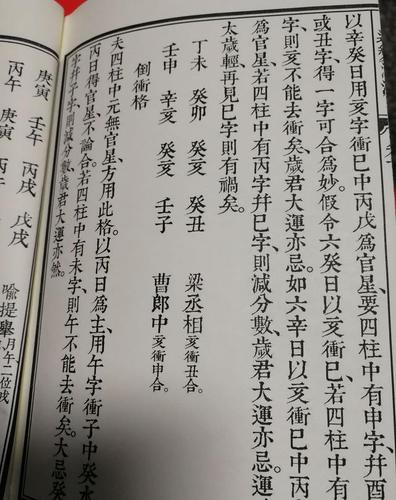 以辛癸日用亥字衝巳中丙戊爲官星、要四柱中有申字、幷酉
或丑字、得一字可合爲妙。假令六癸日以亥衝巳、若四柱中有
字、則亥不能去衝矣、歲君大運亦忌。如六辛日以亥衝巳中丙
爲官星、若四柱中有丙字幷巳字、則減分數、歲君大運亦忌。
太歲輕、再見巳字則有禍矣。
丁未 癸卯 癸亥 癸丑 梁丞相亥衝丑合。
壬申 辛亥 癸亥 壬子 曹郎中亥衝申合。
倒衝格
夫四柱中元無官星、方用此格。以丙日爲主、用午字衝子中癸水
丙日得官星、不論合。若四柱中有未字、則午不能去衝矣。大忌癸
字幷子字、則減分數、歲君大運亦然。
庚寅 壬午 丙戌 戊戌 喻提舉月午二位戌
丙午 庚寅